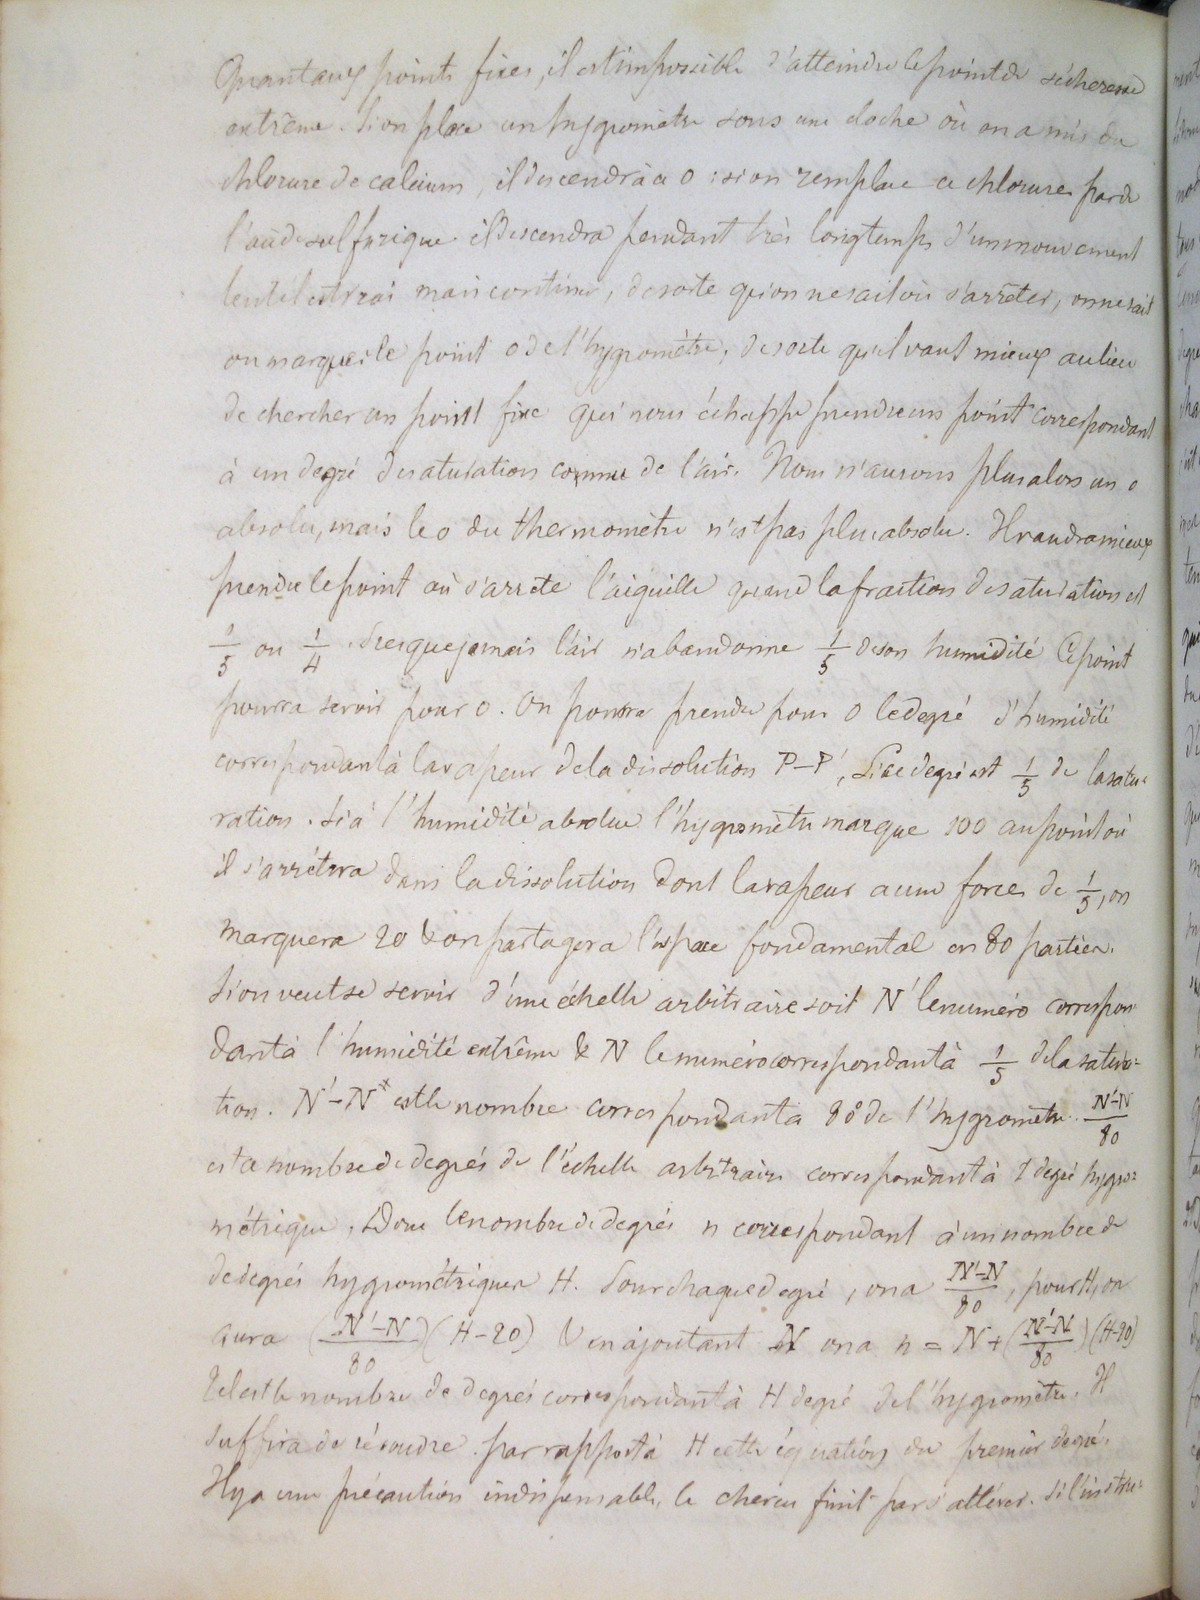 Quant aux points fixes, il est impossible d'atteindre le point de sécheresse
extrême. Si on place un hygromètre sous une cloche où on a mis du
chlorure de calcium, il descendra à 0 : si on remplace ce chlorure par de
l'acide sulfurique il descendra pendant très longtemps d'un mouvement
lent il est vrai mais continu, de sorte qu'on ne sait où s'arrêter, on ne sait
où marquer le point 0 de l'hygromètre; de sorte qu'il vaut mieux au lieu
de chercher un point fixe qui nous échappe prendre un point correspondant
à un degré de saturation connu de l'air. Nous n'aurons plus alors un 0
absolu, mais le 0 du thermomètre n'est pas plus absolu. Il vaudra mieux
prendre le point où s'arrete l'aiguille quand la fraction de saturation est
1/5 ou 1/4. Presque jamais l'air n'abandonne 1/5 de son humidité Ce point
pourra servir pour 0. On pourra prendre pour 0 le degré d'humidité
correspondant à la vapeur de la dissolution P-P', Si ce degré est 1/5 de la satu-
ration. Si à l'humidité absolue l'hygromètre marque 100 au point où
il s'arrêtera dans la dissolution dont la vapeur a une force de 1/5, on
marquera 20 & on partagera l'espace fondamental en 80 parties.
Si on veut se servir d'une échelle arbitraire soit N' le numéro correspon
dant à l'humidité extrême & N le numéro correspondant à 1/5 de la satura-
tion. N'-N* est le nombre correspondant à 80 de l'hygromètre. N'-N/80
est le nombre de degrés de l'échelle arbitraire correspondant à 1 degré hygro-
métrique. Donc le nombre de degrés n correspondant à un nombre de
de degrés hygrométriques H. Pour chaque degré, on a N'-N/80, pour H, on
aura (N'-N/80)(H-20) & en ajoutant N on a n = N+(N'-N/80)(H-20)
Tel est le nombre de degrés correspondant à H degré de l'hygromètre. Il
suffira de résoudre par rapport à H cette équation du premier degré.
Il y a une précaution indispensable, le cheveu finit par s'altérer. Si l'instru-